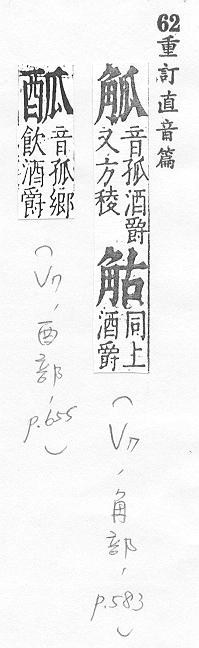 62重訂直音篇
觚音孤酒爵又方稜 𧣪同上酒爵
(V7,角部,p.583)
㼋音孤鄉飲酒爵
(V7,酉部,p.655)